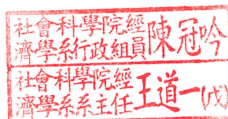 社會科學院經
濟學系行政組員陳冠吟
社會科學院經
濟學系系主任王道一(戊)